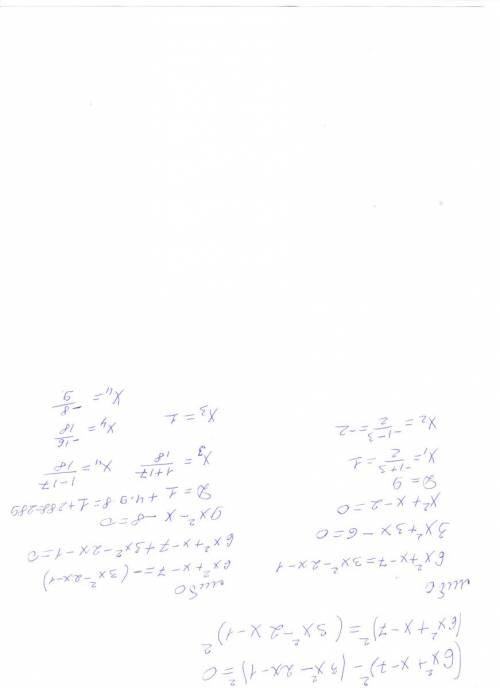 (6x²+x-7)²-(3x²-2x-1)²=0
(6x²+x-7)²=(3x²-2x-1)²
либо
6x²+x-7=3x²-2x-1
3x²+3x-6=0
x²+x-2=0
D=9
x₁=(-1+3)/2=1
x₂=(-1-3)/2=-2
либо
6x²+x-7=-(3x²-2x-1)
6x²+x-7+3x²-2x-1=0
9x²-x-8=0
D=1+4·9·8=1+288=289
x₃=(1+17)/18 x₄=(1-17)/18
x₃=1 x₄=-16/18
x₄=-8/9